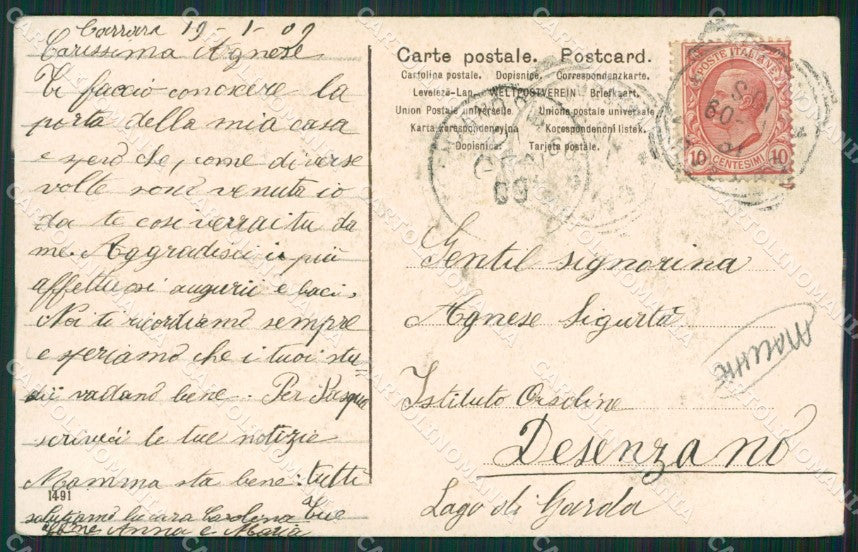 Carrara 19-1-09
Carissima Agnese
Ti faccio conoscere la
porta della mia casa
e spero che, come diverse
volte sono venuta io
da te così verrai tu da
me. Aggradisci i più
affettuosi augurii e baci.
Noi ti ricordiamo sempre
e speriamo che i tuoi stu
dii vadano bene. Per Pasqua
scrivici le tue notizie
Mamma sta bene. Tutti
1491
salutiamo la cara Carolina Tue
Anna e Maria
Carte postale. Postcard.
Cartolina postale. Dopisnice. Correspondenzkarte.
Levelezö-Lap. WELTPOSTVEREIN Briefkaart.
Union Postale universelle. Unione postale universale
Karta korespondencyjna Korespondencni listek.
Dopisnica. Tarjeta postale.
POSTE ITALIANE
10 CENTESIMI 10
09
Gentil signorina
Agnese Sigurtà
Istituto Orsoline
Desenzano
Lago di Garda
CARTOLINOMANIA